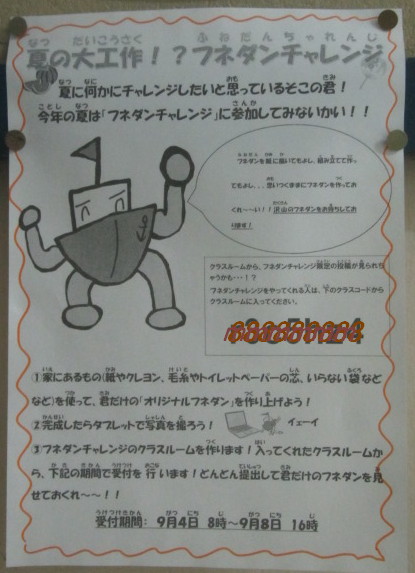 夏の大工作！？フネダンチャレンジ
夏に何かにチャレンジしたいと思っているそこの君！
今年の夏は「フネダンチャレンジ」に参加してみないかい！！
フネダンを紙に描いてもよし、組み立てて作っ
てもよし、、、思いつくままにフネダンを作ってお
くれ～い！！沢山のフネダンをお待ちしてお
ります！
クラスルームから、フネダンチャレンジ限定の投稿が見られち
ゃうかも・・・！？
フネダンチャレンジをやってくれる人は、下のクラスコードから
クラスルームに入ってください。
①家にあるもの(紙やクレヨン、毛糸やトイレットペーパーの芯、いらない袋など
など)を使って、君だけの「オリジナルフネダン」を作り上げよう！
②完成したらタブレットで写真を撮ろう！
イェーイ
③フネダンチャレンジのクラスルームを作ります！入ってくれたクラスルームか
ら、下記の期間で受付を行います！どんどん提出して君だけのフネダンを見
せておくれ～～！！
受付期間： 9月4日 8時～9月8日 16時